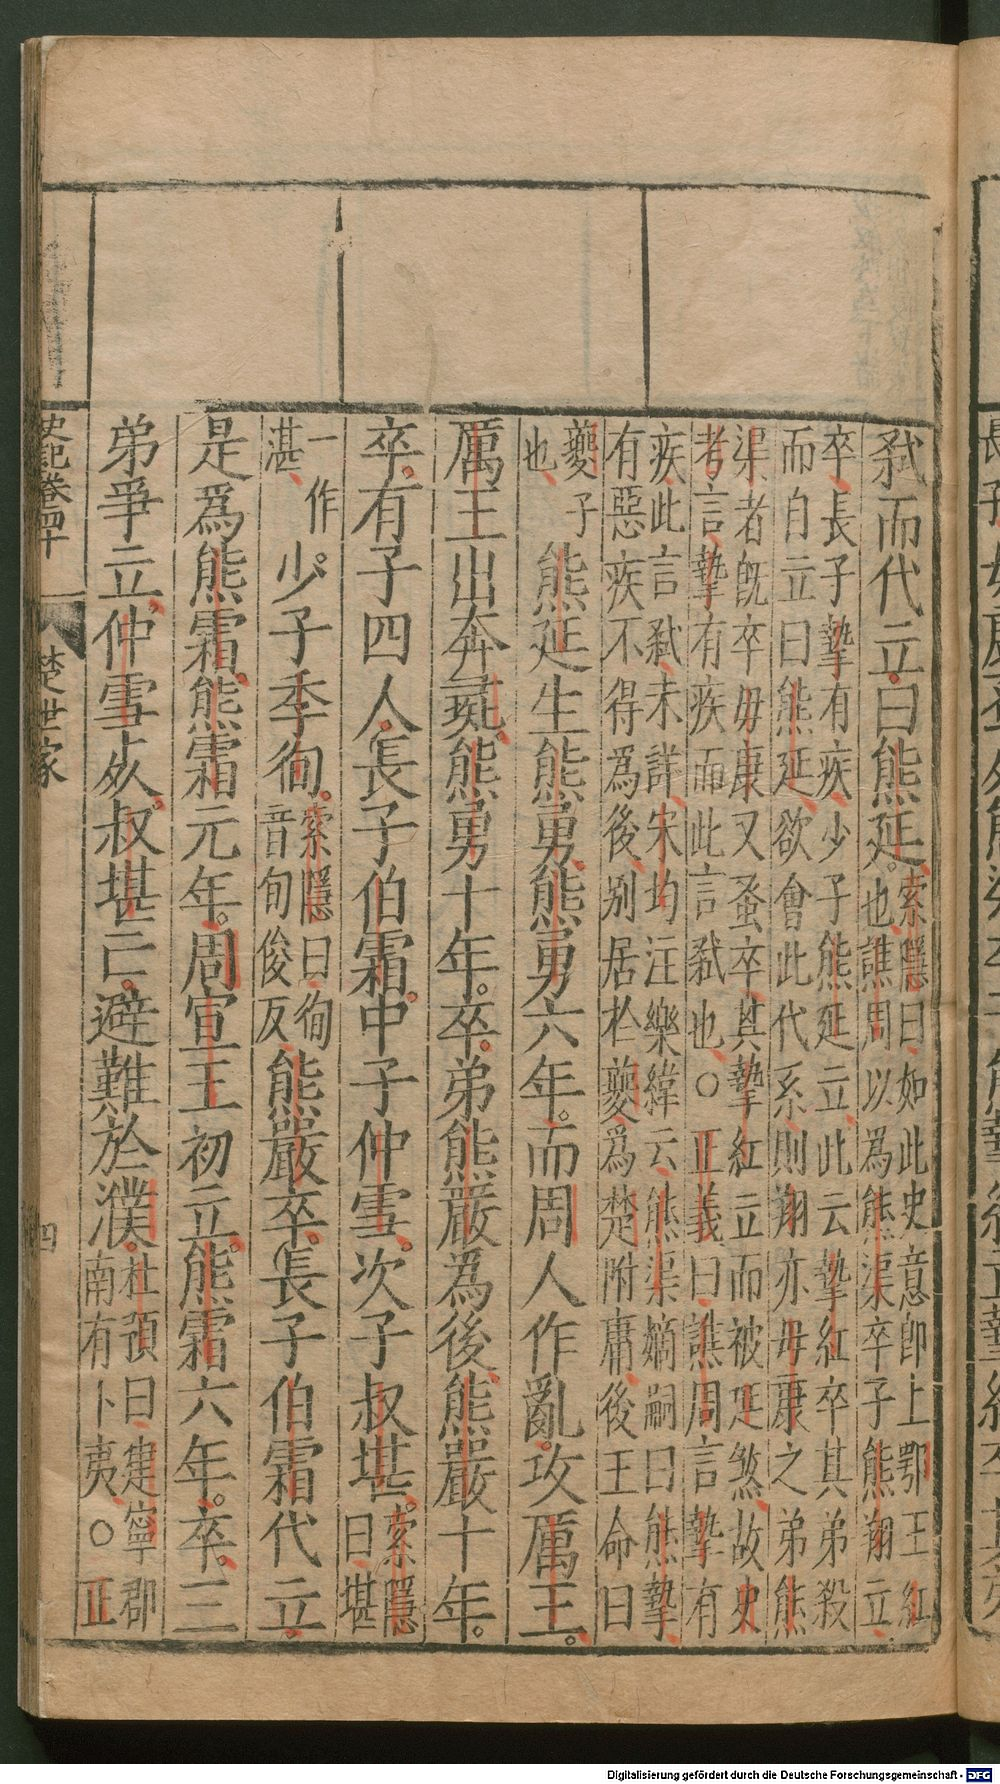 弑而代立曰熊延。索隱曰如此史意卽上鄂王紅
也譙周以爲熊渠卒子熊翔立
卒長子摯有疾少子熊延立此云摯紅卒其弟殺
而自立曰熊延欲會此代系則翔亦毋康之弟熊
渠者旣卒毋康又蚤卒其摯紅立而被延煞故史
考言摯有疾而此言弑也○正義曰譙周言摯有
疾此言弑未詳宋均注樂緯云熊渠嫡嗣曰熊摯
有惡疾不得爲後别居於夔爲楚附庸後王命曰
夔子
也
熊延生熊勇熊勇六年。而周人作亂。攻厲王。
厲王出奔彘熊勇十年。卒。弟熊嚴爲後熊嚴十年。
卒。有子四人長子伯霜。中子仲雪。次子叔堪。索隱
曰堪
一作
湛
少子季徇。索隱曰徇
音旬俊反
熊嚴卒。長子伯霜代立。
是爲熊霜。熊霜元年。周宣王初立。熊霜六年。卒。三
弟爭立。仲雪死。叔堪亡。避難於濮。杜預曰建寧郡
南有卜夷○正
史記卷四十 楚世家 四
Digitalisierung gefördert durch die Deutsche Forschungsgemeinschaft - DFG